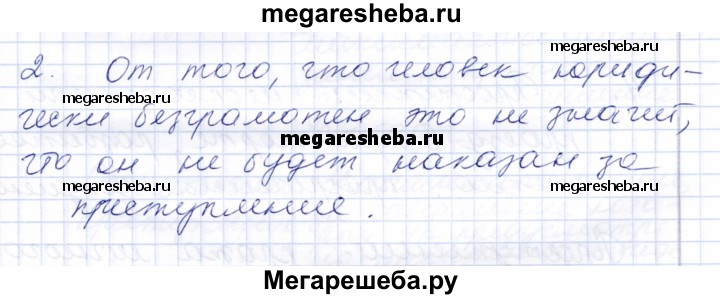 megaresheba.ru
megaresheba.ru
2. От того, что человек юриди-
megaresheba.ru megaresheba.ru
чески безграмотен это не значит,
megaresheba.ru
что он не будет наказан за
megaresheba.ru megaresheba.ru
преступление.
Мегарешеба.ру